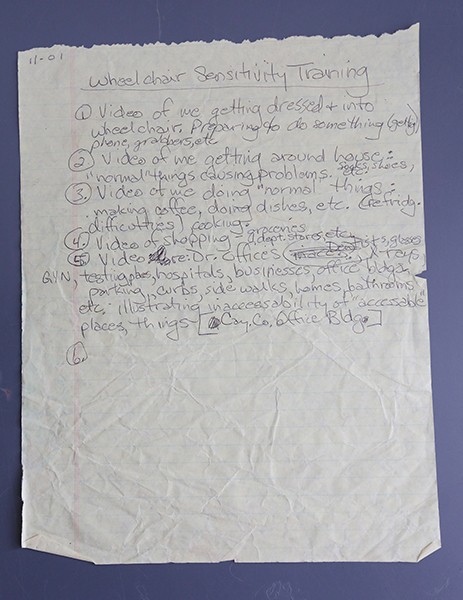 11-01
Wheelchair Sensitivity Training
① Video of me getting dressed + into
wheelchair. Preparing to do something (getting
phone, grabbers, etc
② Video of me getting around house:
"normal" things causing problems. socks, shoes, etc.
③. Video of me doing "normal" things:
making coffee, doing dishes, etc. (refridg.
difficulties) cooking.
④. Video of shopping - groceries
dept. stores, etc.
⑤. Video re: Dr. Offices Dentists, glasses
X-rays,
GYN, testing places, hospitals, businesses, office bldgs.
parking, curbs, side walks, homes, bathrooms
etc. illustrating inaccessability of "accessable"
places, things - Cay. Co. Office Bldg.
⑥.